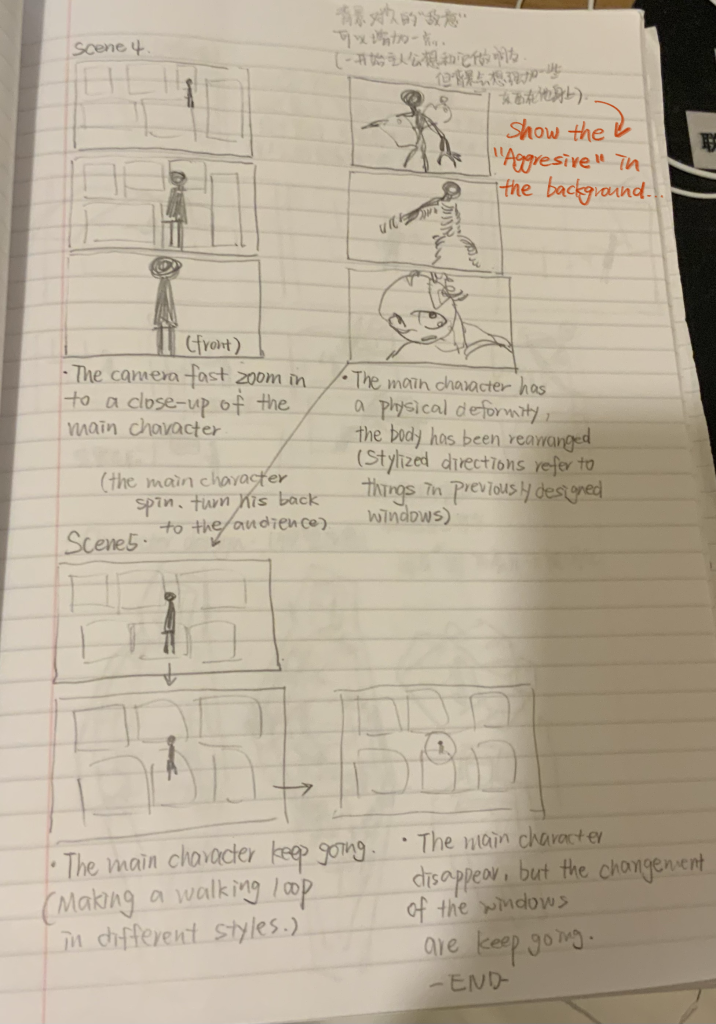 背景对人的"敌意"
可以增加一点.
(一开始主人公想和它们
但背景会想强加一些
东西在他身上).
Show the
"Aggresire" in
the background...
Scene 4.
(front)
· The camera fast zoom in
to a close-up of the
main character.
· The main character has
a physical deformity,
the body has been rearranged
(Stylized directions refer to
things in previously designed
windows)
(the main character
spin. turn his back
to the audience)
Scene5.
· The main character keep going.
(Making a walking loop
in different styles.)
· The main character
disappear, but the changement
of the windows
are keep going.
-END-
联